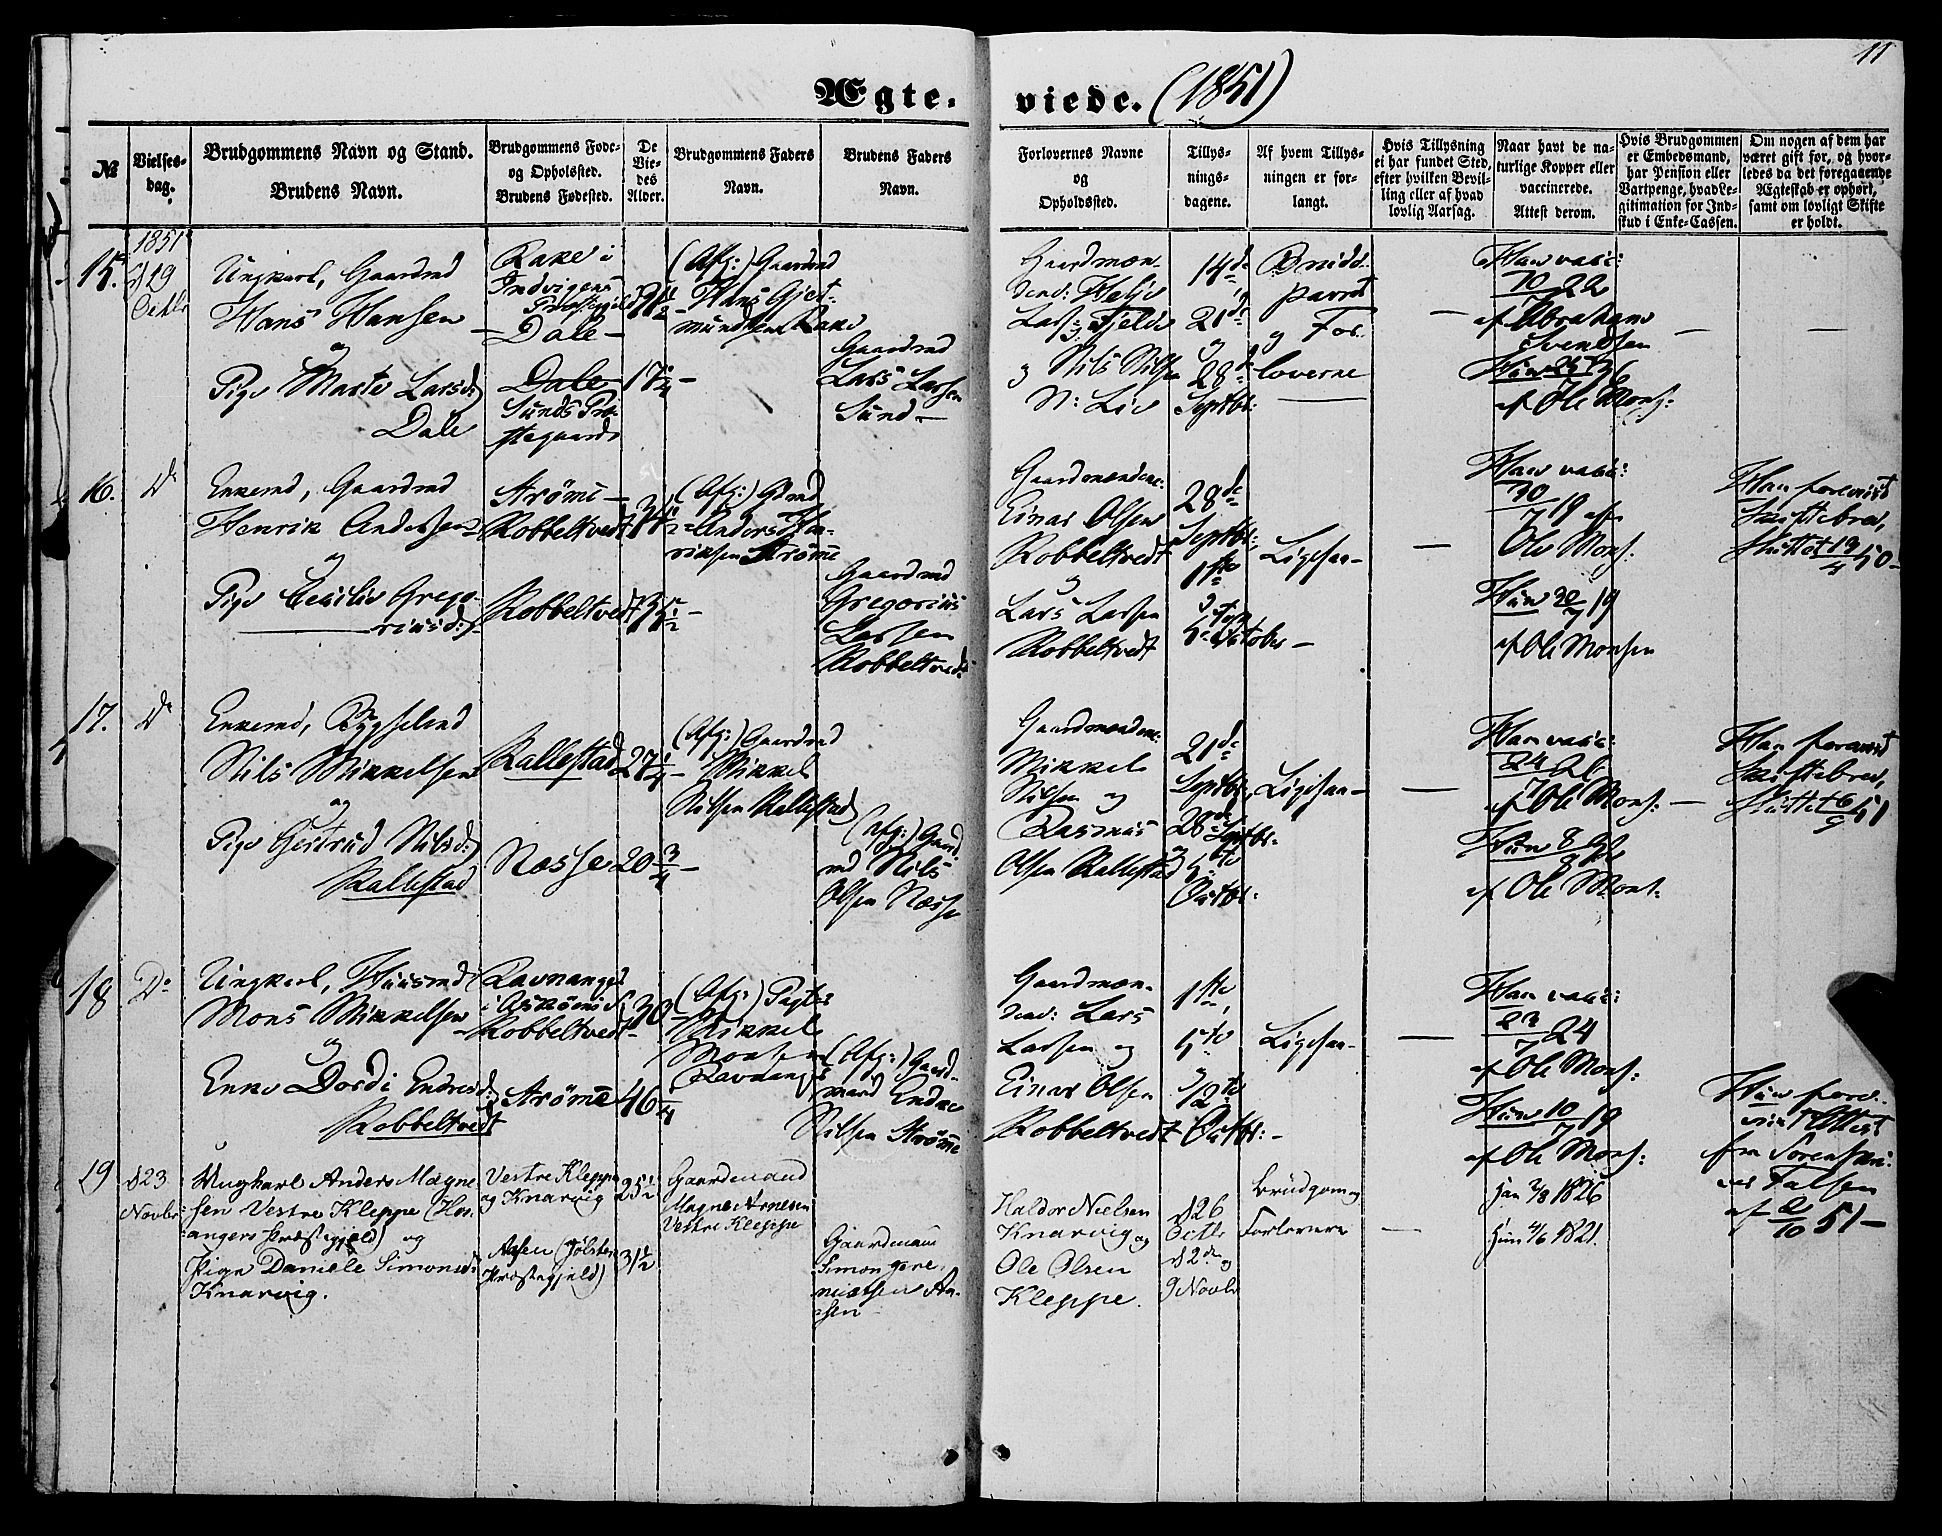 11
Ægte-
viede. (1851)
№
Vielses-
dag.
Brudgommens Navn og Stand.
Brudens Navn.
Brudgommens Føde-
og Opholsted.
Brudens Fødested.
De
Vie-
des
Alder.
Brudgommens Faders
Navn.
Brudens Faders
Navn.
Forlovernes Navne
og
Opholdssted.
Tillys-
nings-
dagene.
Af hvem Tillys-
ningen er for-
langt.
Hvis Tillysning
ei har fundet Sted,
efter hvilken Bevil-
ling eller af hvad
lovlig Aarsag.
Naar havt de na-
turlige Kopper eller
vaccinerede.
Attest derom.
Hvis Brudgommen
er Embedsmand,
har Pension eller
Vartpenge, hvad Le-
gitimation for Ind-
skud i Enke-Cassen.
Om nogen af dem har
været gift før, og hvor-
ledes da det foregaaende
Ægteskab er ophørt,
samt om lovligt Skifte
er holdt.
15.
1851
19
Octbr
Ungkarl, Gaardmd
Hans Hansen
og
Pige Marte Larsd:
Dale
Rake i
Indvigens
Præstegjeld
Dale
Dale
Sunds Præ-
stegaard
17 1/4
(Afg:) Gaardmd
Hans Gjet-
mundsen Rake
Gaardmd
Lars Larsen
Sund
Gaardmæn-
dene:
Lars: Fjelde
og Nils Nilsen
N: Lie
14de,
21de
og
28de
Septbr:
Brude-
parret
og For-
loverne
Han vacc:
10/7 22
af Abraham
Svendsen
Hun
af Ole Mons:
16.
Do
Enkemd, Gaardmd
Henrik Andersen
og
Pige Cecilie Grego-
riusd:
StrømE
Robbeltvedt
Robbeltvedt
(Afg:) Gdmd
Anders Hen-
riksen Strøme
Gaardmd
Gregorius
Larsen
Robbeltvedt
Gaardmændene:
Einar Olsen
Robbeltvedt
og
Lars Larsen
Robbeltvedt
28de
Septbr:,
October
Ligesaa
Han vacc:
30/7 19 af
Ole Mons:
Hun 30/7 19
af Ole Monsen
Han foreviist
Skiftebrev,
sluttet 13/4 50
17.
Do
Enkemd, Bygselmd
Nils Mikkelsen
og
Pige Gertrud Nilsd:
Rallestad
Rallestad
27 1/4
Næsse
20 3/4
(Afg:) Gaardmd
Mikkel
Nilsen Rallestad
(Afg:) Gaard-
md Nils
Olsen Næsse
Gaardmændene:
Mikkel
Nilsen og
Rasmus
Olsen Rallestad
21de
Septbr,
28de Septbr:
og 5te
Octbr:
Ligesaa
Han vacc:
24/7 26
af Ole Mons:
Hun 8
af Ole Mons:
Han foreviist
Skiftebrev,
sluttet 6/9 51
18
Do
Ungkarl, Huusmd
Mons Mikkelsen
og
Enke Dordi Endresd:
Robbeltvedt
Ravnanger
i Askøens S.
Robbeltvedt
30
Strøme
46 1/4
(Afg:) Pagter
Mikkel
Monsen
Ravnanger
(Afg:) Gaard-
mand Endre
Nilsen Strøme
Gaardmæn-
dene: Lars
Larsen og
Einar Olsen
Robbeltvedt
5te
og
12te
Octbr:
Ligesaa
Han vacc:
23/7 24
af Ole Mons:
Hun 10/7 19
af Ole Mons:
Hun fore-
viist Attest
fra Sorenskri-
ver Falsen
af 2/10 51
19
d 23
Novbr
Ungkarl Anders Magne-
sen Vestre Kleppe (Ho-
angers Præstegjeld) og
Pige Daniele Simonsd:
Knarvig.
Vestre Kleppe
og Knarvig
25 1/2
Aasen (Jølster
Præstegjeld)
31 1/2
Gaardmand
Magne Arnesen
Vestre Kleppe
Gaardmand
Simon Jere-
miassen Aa-
sen
Haldor Nielsen
Knarvig og
Ole Olsen
Kleppe.
d 26
Octbr
d 2den og
9 Novbr
Brudgom og
Forlovere
han 2/8 1826
hun 4/6 1821.